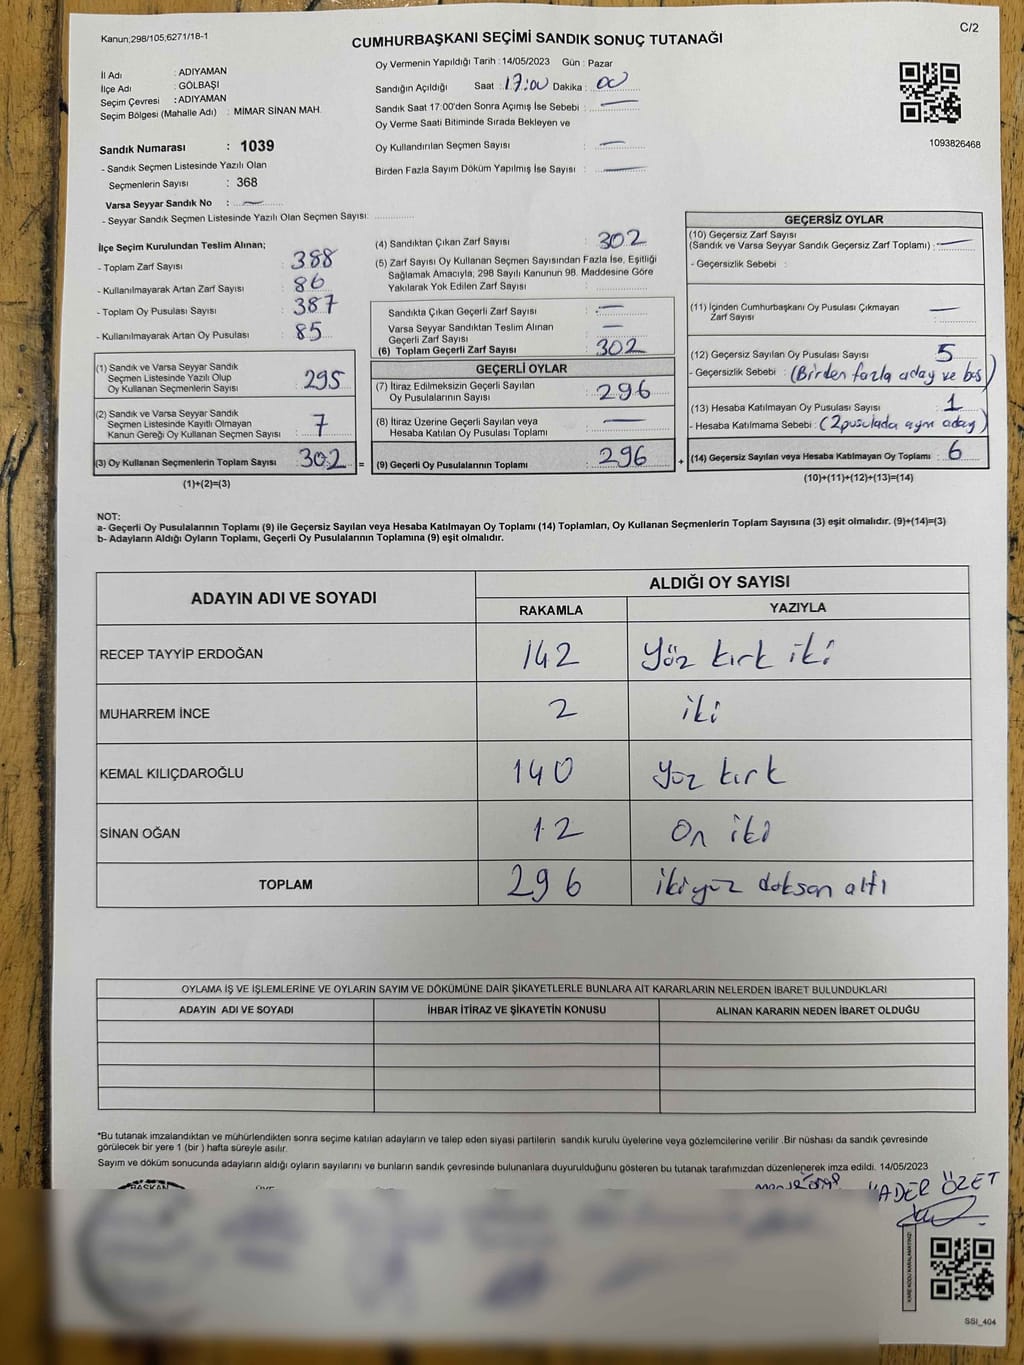 Kanun;298/105,6271/18-1
C/2
CUMHURBAŞKANI SEÇİMİ SANDIK SONUÇ TUTANAĞI
İl Adı : ADIYAMAN
İlçe Adı : GÖLBAŞI
Seçim Çevresi : ADIYAMAN
Seçim Bölgesi (Mahalle Adı) : MİMAR SİNAN MAH.
Sandık Numarası : 1039
- Sandık Seçmen Listesinde Yazılı Olan
Seçmenlerin Sayısı : 368
Varsa Seyyar Sandık No : —
- Seyyar Sandık Seçmen Listesinde Yazılı Olan Seçmen Sayısı:
Oy Vermenin Yapıldığı Tarih : 14/05/2023 Gün : Pazar
Sandığın Açıldığı Saat : 17:00 Dakika : 00
Sandık Saat 17:00'den Sonra Açımış İse Sebebi : —
Oy Verme Saati Bitiminde Sırada Bekleyen ve
Oy Kullandırılan Seçmen Sayısı : —
Birden Fazla Sayım Döküm Yapılmış İse Sayısı : —
1093826468
İlçe Seçim Kurulundan Teslim Alınan;
- Toplam Zarf Sayısı : 388
- Kullanılmayarak Artan Zarf Sayısı : 86
- Toplam Oy Pusulası Sayısı : 387
- Kullanılmayarak Artan Oy Pusulası : 85
(1) Sandık ve Varsa Seyyar Sandık
Seçmen Listesinde Yazılı Olup
Oy Kullanan Seçmenlerin Sayısı : 295
(2) Sandık ve Varsa Seyyar Sandık
Seçmen Listesinde Kayıtlı Olmayan
Kanun Gereği Oy Kullanan Seçmen Sayısı : 7
(3) Oy Kullanan Seçmenlerin Toplam Sayısı : 302 =
(1)+(2)=(3)
(4) Sandıktan Çıkan Zarf Sayısı : 302
(5) Zarf Sayısı Oy Kullanan Seçmen Sayısından Fazla İse, Eşitliği
Sağlamak Amacıyla, 298 Sayılı Kanunun 98. Maddesine Göre
Yakılarak Yok Edilen Zarf Sayısı :
Sandıkta Çıkan Geçerli Zarf Sayısı : —
Varsa Seyyar Sandıktan Teslim Alınan
Geçerli Zarf Sayısı : —
(6) Toplam Geçerli Zarf Sayısı : 302
GEÇERLİ OYLAR
(7) İtiraz Edilmeksizin Geçerli Sayılan
Oy Pusulalarının Sayısı : 296
(8) İtiraz Üzerine Geçerli Sayılan veya
Hesaba Katılan Oy Pusulası Toplamı : —
(9) Geçerli Oy Pusulalarının Toplamı : 296 +
GEÇERSİZ OYLAR
(10) Geçersiz Zarf Sayısı
(Sandık ve Varsa Seyyar Sandık Geçersiz Zarf Toplamı) : —
- Geçersizlik Sebebi :
(11) İçinden Cumhurbaşkanı Oy Pusulası Çıkmayan
Zarf Sayısı : —
(12) Geçersiz Sayılan Oy Pusulası Sayısı : 5
- Geçersizlik Sebebi : (Birden fazla aday ve boş)
(13) Hesaba Katılmayan Oy Pusulası Sayısı : 1
- Hesaba Katılmama Sebebi : (2 pusulada ayrı aday)
(14) Geçersiz Sayılan veya Hesaba Katılmayan Oy Toplamı : 6
(10)+(11)+(12)+(13)=(14)
NOT:
a- Geçerli Oy Pusulalarının Toplamı (9) ile Geçersiz Sayılan veya Hesaba Katılmayan Oy Toplamı (14) Toplamları, Oy Kullanan Seçmenlerin Toplam Sayısına (3) eşit olmalıdır. (9)+(14)=(3)
b- Adayların Aldığı Oyların Toplamı, Geçerli Oy Pusulalarının Toplamına (9) eşit olmalıdır.
ADAYIN ADI VE SOYADI
ALDIĞI OY SAYISI
RAKAMLA YAZIYLA
RECEP TAYYİP ERDOĞAN 142 Yöz kırk iki
MUHARREM İNCE 2 iki
KEMAL KILIÇDAROĞLU 140 Yüz kırk
SİNAN OĞAN 12 On iki
TOPLAM 296 ikiyüz doksan altı
OYLAMA İŞ VE İŞLEMLERİNE VE OYLARIN SAYIM VE DÖKÜMÜNE DAİR ŞİKAYETLERLE BUNLARA AİT KARARLARIN NELERDEN İBARET BULUNDUKLARI
ADAYIN ADI VE SOYADI İHBAR İTİRAZ VE ŞİKAYETİN KONUSU ALINAN KARARIN NEDEN İBARET OLDUĞU
*Bu tutanak imzalandıktan ve mühürlendikten sonra seçime katılan adayların ve talep eden siyasi partilerin sandık kurulu üyelerine veya gözlemcilerine verilir .Bir nüshası da sandık çevresinde
görülecek bir yere 1 (bir ) hafta süreyle asılır.
Sayım ve döküm sonucunda adayların aldığı oyların sayılarını ve bunların sandık çevresinde bulunanlara duyurulduğunu gösteren bu tutanak tarafımızdan düzenlenerek imza edildi. 14/05/2023
BAŞKAN
ÖZET
SSİ_404